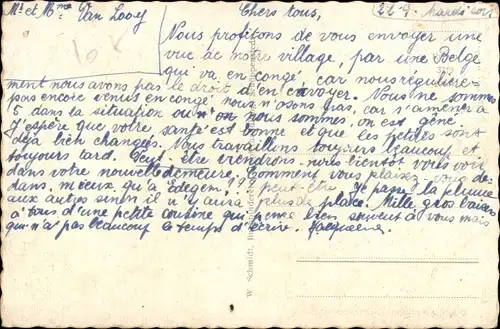 Mr et Mme Van Looy
Chers tous, 22-9- Mardi soir
Nous profitons de vous envoyer une
vue de notre village, par une Belge
qui va, en congé, car nous régulière-
ment nous avons pas le droit d'en envoyer. Nous ne sommes
pas encore venus en congé nous n'osons pas, car s'amener à
5 dans la situation ou n'on nous sommes, on est gêné.
J'espère que votre santé est bonne et que les petites sont
déjà bien changées. Nous travaillons toujours beaucoup et
toujours tard. Peut-être viendrons-nous bientôt vous voir
dans votre nouvelle demeure. Comment vous plaisez-vous de-
dans, mieux qu'à Edegem?? peut être Je passe la plume
aux autres sinon il n'y aura plus de place. Mille gros baisers
à tous d'une petite cousine qui pense bien souvent à vous mais
qui n'a pas beaucoup le temps d'écrire. Jacqueline
W. Schmidt,